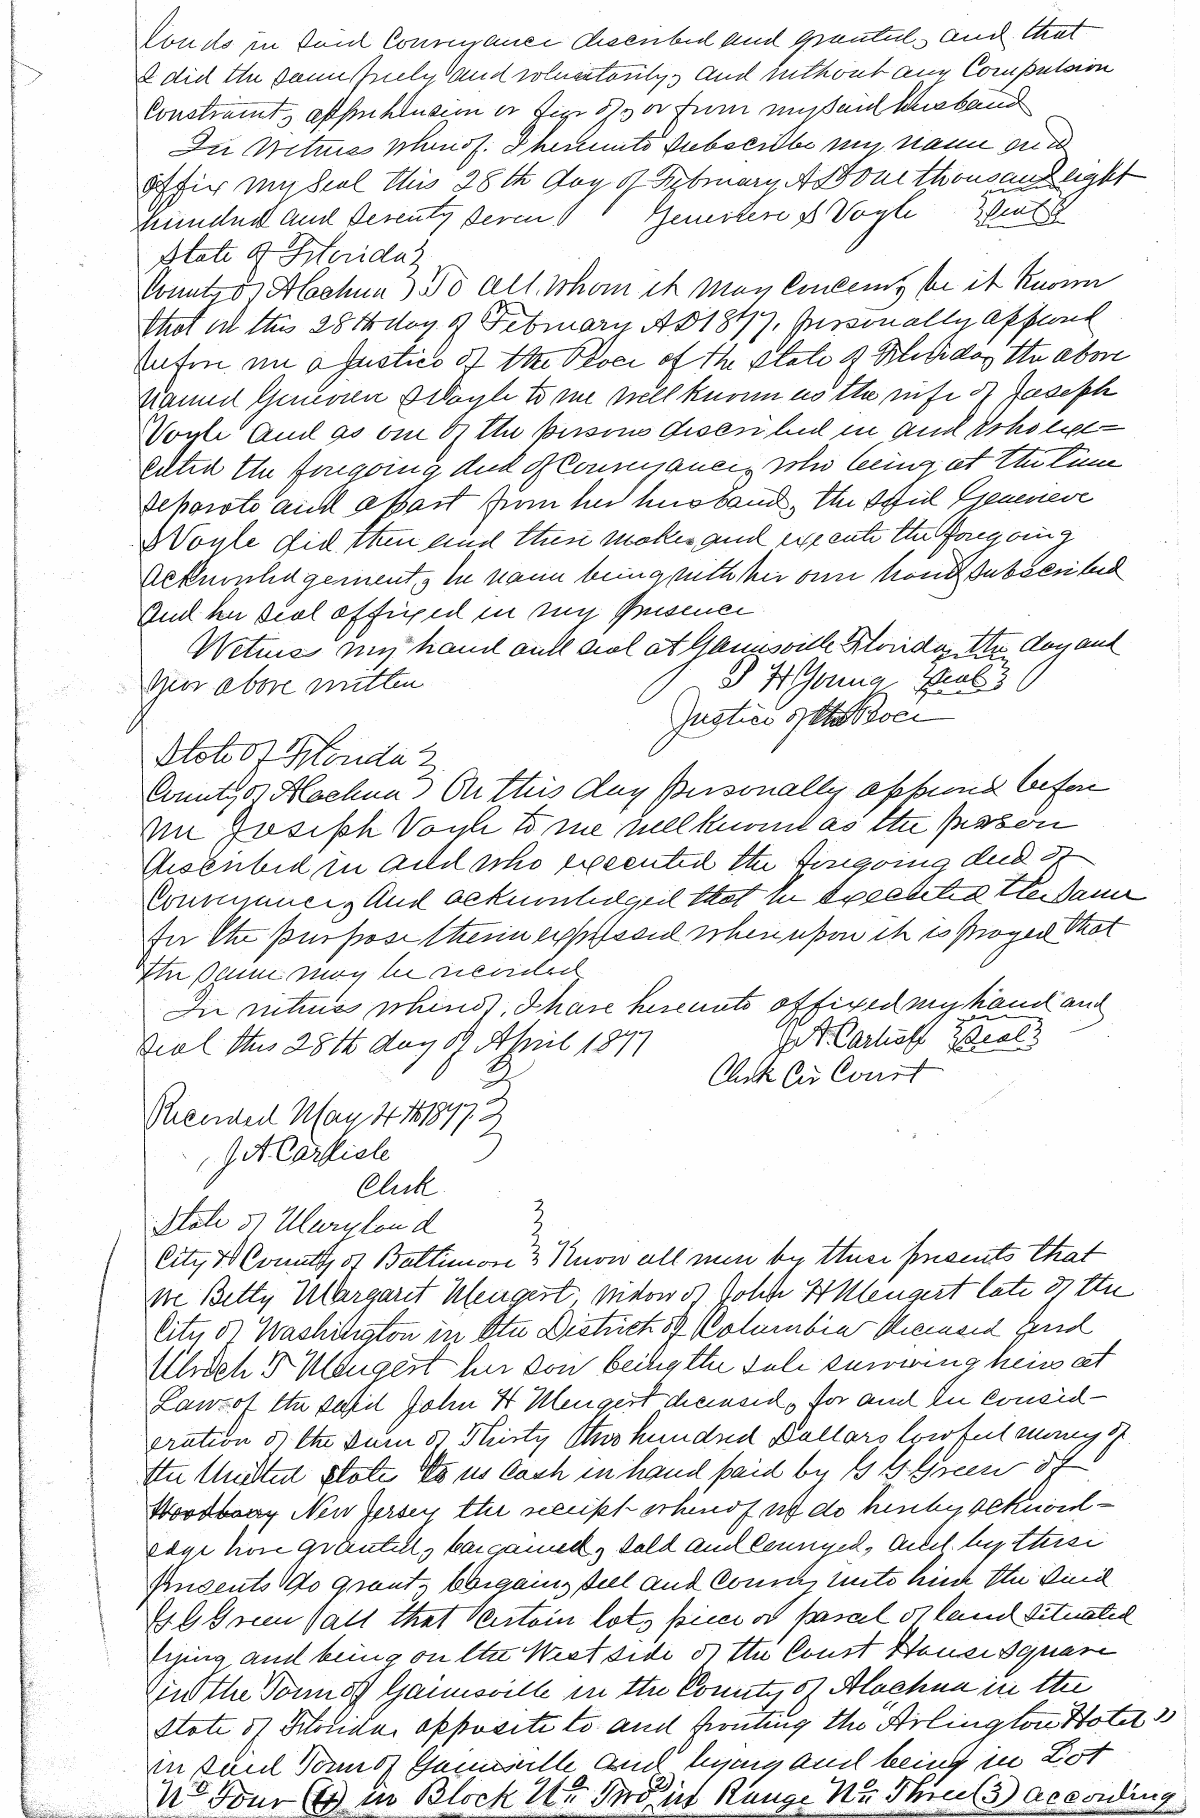 lands in said Conveyance described and granted, and that
I did the same freely and voluntarily, and without any Compulsion
Constraint, apprehension or fear of, or from my said husband
In Witness whereof. I hereunto Subscribe my name and
affix my Seal this 28th day of February AD one thousand eight
hundred and seventy seven Genevieve S Vogle {Seal}
State of Florida }
County of Alachua } To all whom it may Concern, be it Known
that on this 28th day of February AD 1877. personally appeared
before me a Justice of the Peace of the State of Florida, the above
named Genevieve S Vogle to me well known as the wife of Joseph
Vogle and as one of the persons described in and who exe=
cuted the foregoing deed of Conveyance, who being at the time
separate and apart from her husband, the said Genevieve
S Vogle did then and there make and execute the foregoing
Acknowledgement, her name being with her own hand subscribed
and her seal affixed in my presence
Witness my hand and seal at Gainesville Florida, the day and
year above written S H Young {Seal}
Justice of the Peace
State of Florida }
County of Alachua } On this day personally appeared before
me Joseph Vogle to me well known as the person
described in and who executed the foregoing deed of
Conveyance, And acknowledged that he executed the same
for the purpose therein expressed whereupon it is prayed that
the same may be recorded
In witness whereof, I have hereunto affixed my hand and
seal this 28th day of April 1877 J. A. Carlisle {Seal}
Clerk Cir Court
Recorded May 4th 1877 }
J A Carlisle
Clerk
State of Maryland }
City & County of Baltimore } Know all men by these presents that
we Betty Margaret Mengert, widow of John H Mengert late of the
City of Washington in the District of Columbia deceased and
Ulrich J Mengert her son being the sole surviving heirs at
Law of the said John H Mengert deceased, for and in consid-
eration of the sum of Thirty Two hundred Dollars lawful money of
the United States to us Cash in hand paid by G G Green of
Woodbury New Jersey the receipt whereof we do hereby acknowl-
edge have granted, bargained, sold and conveyed, and by these
presents do grant, bargain, sell and convey unto him the said
G G Green all that certain lot, piece or parcel of land situated
lying and being on the West side of the Court House Square
in the Town of Gainesville in the County of Alachua in the
State of Florida. opposite to and fronting the "Arlington Hotel"
in said Town of Gainesville and lying and being in Lot
No Four (4) in Block No Two (2) in Range No Three (3) according